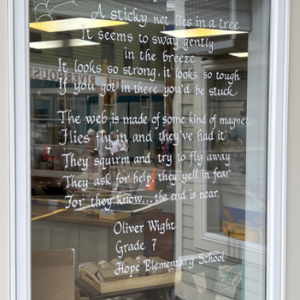 A sticky net lies in a tree
It seems to sway gently
in the breeze
It looks so strong, it looks so tough
If you got in there you'd be stuck
The web is made of some kind of magnet
Flies fly in and they've had it
They squirm and try to fly away
They ask for help, they yell in fear
For they know... the end is near.
Oliver Wight
Grade 7
Hope Elementary School